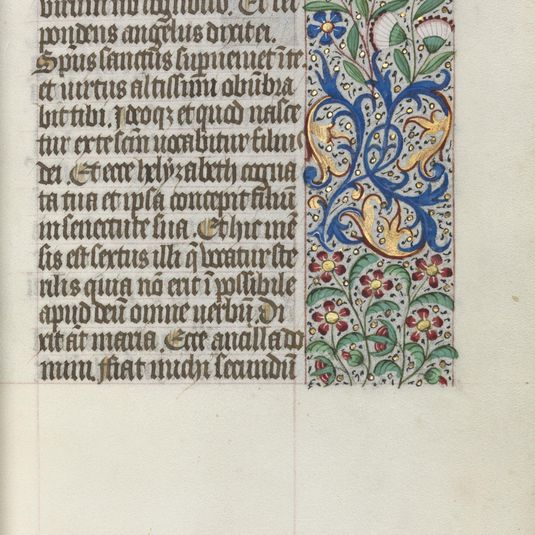 virum no cognosco. Et res
pondens angelus dixit ei.
Spūs sanctus supueniet ī te
et virtus altissimi obūbra
bit tibi. Ideoqȝ et quod nasce
tur ex te scm̄ vocabitur filius
dei. Et ecce helyzabeth cogna
ta tua et ipsa concepit filium
in senectute sua. Et hic mē
sis est sextus illi q̄ vocatur ste
rilis quia nō erit īpossibile
apud deū omne verbū. Di
xit aūt maria. Ecce ancilla do
mini. fiat michi secundū